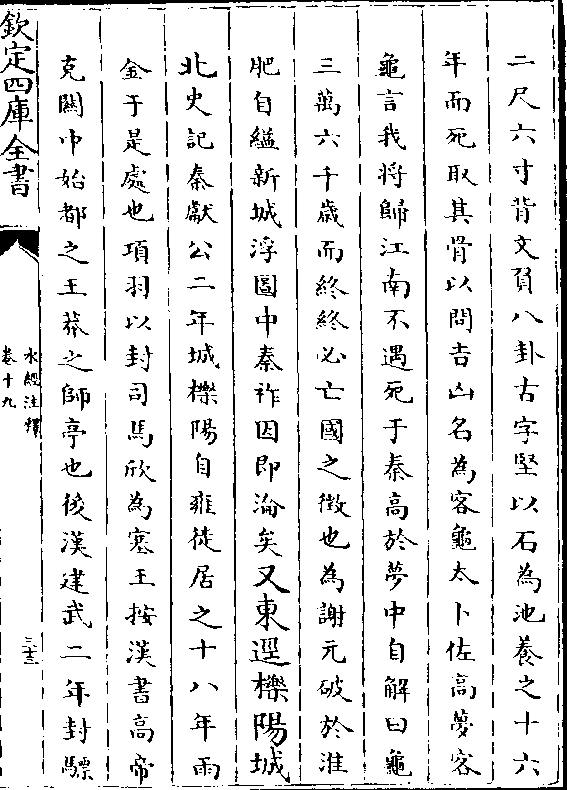 二尺六寸背文負八卦古字堅以石為池養之十六
年而死取其骨以問吉凶名為客龜太卜佐高夢客
龜言我將歸江南不遇死于秦高於夢中自解曰龜
三萬六千歲而終終必亡國之徵也為謝元破於淮
肥自縊新城浮圖中秦祚因即淪矣又東逕櫟陽城
北史記秦獻公二年城櫟陽自雍徙居之十八年雨
金于是處也項羽以封司馬欣為塞王按漢書高帝
克關中始都之王莽之師亭也後漢建武二年封驃
欽定四庫全書
水經注釋
卷十九
三十三